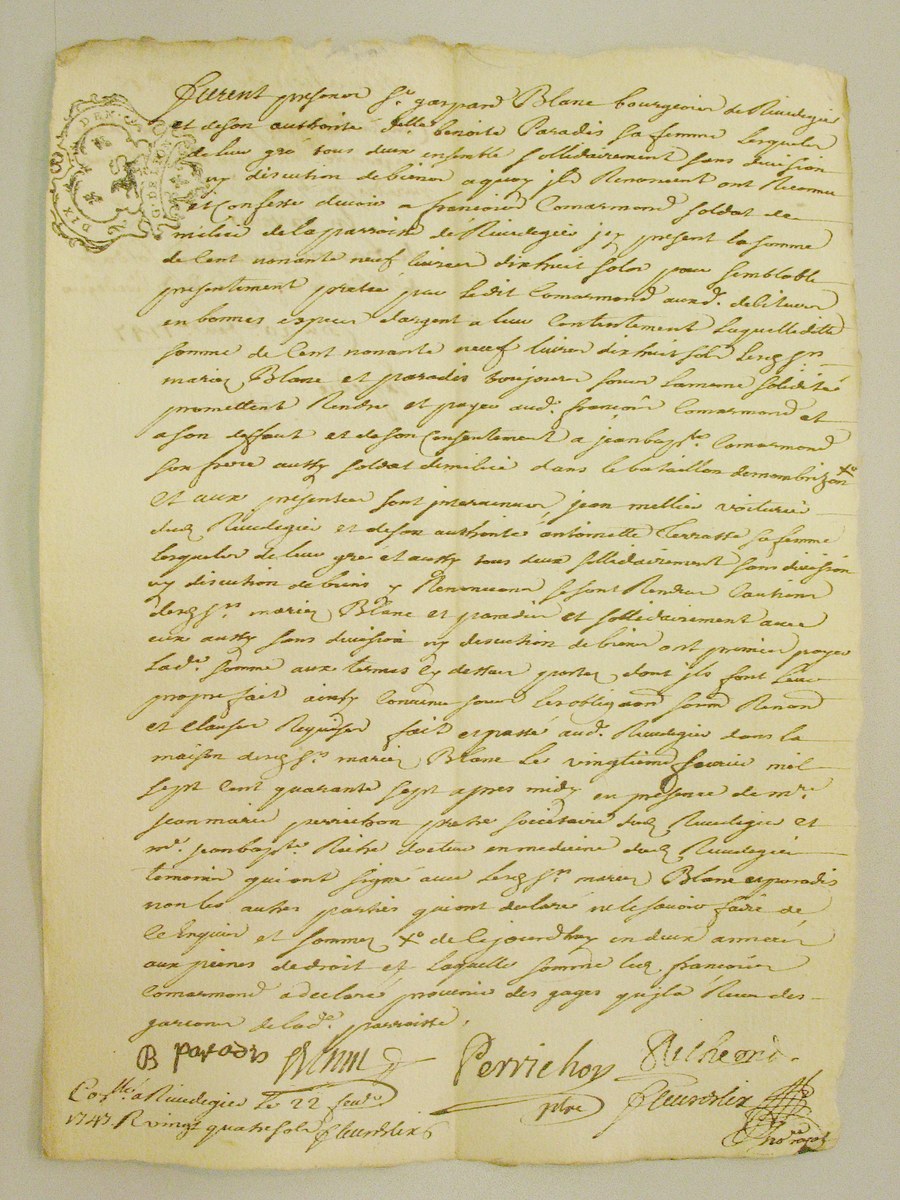 DIX DEN.
G. DE LYON
furent presener Sr. gaspard Blanc bourgeoier de Rivedegier
et deson authorité delle. benoite Paradis sa femme lesqueler
de leur gré tous deux ensemble sollidairement sans division
ny discution de biener a quoy jls Renoncent ont Reconnu
et Confessé devoir a francoier Comarmond soldat de
milice de la parroisse de Rivedegier jcy present la somme
de Cent nonante neuf livrer dixhuit solz pour semblable
presentement pretée par ledit Comarmond auxd. debiteurs
en bonnes especes dargent a leur Contentement laquelle ditte
somme de Cent nonante neuf livrer dix huit solz lesd. srs
mariez Blanc et paradis toujours sous la meme solidité
promettent Rendre et payer aud. francoir Comarmond et
a son deffaut et deson Consentement a jeanbapte. Comarmond
son frere aussy soldat demilice dans le bataillon demontbrizon x
et aux presenter sont jntervenus jean mellier voiturier
dud. Rivedegier et deson authorité antoinette Terrasse sa femme
lesqueler de leur gré et aussy tous deux sollidairement sans division
ny discution de biens y Renoncant se sont Rendus Cautions
desd. srs mariez Blanc et paradis et sollidairement avec
eux aussy sans division ny discution de biener ont promier payer
lade. somme aux termes cy dessus portez dont jls font leur
propre fait ainsy Convenu sous les obligaons soumd Renond
et Clauser Requiser fait et passé aud. Rivedegier dans la
maison desd. srs mariez Blanc le vingtieme fevrier mil
sept Cent quarante sept apres midy en presence de mre.
jean marie perrichon pretre societaire dud. Rivedegier et
mr. jeanbapte. Riche docteur en medecine dud. Rivedegier
temoins qui ont signé avec lesd. srs mariez Blanc et paradis
non les autres parties qui ont declaré ne le savoir faire de
Ce Enquis et sommez x de Cejourdhuy en deux années
aux peines de droit et laquelle somme led. francoier
Comarmond a declaré provenir des gages qujl a Receu des
garcons de lad. parroisse.
B paradis Blanc Perrichon Richeme
ptre fleurdelix
Collé. a Rivedegier le 22 fevr.
1747. R vingt quatre solz fleurdelix